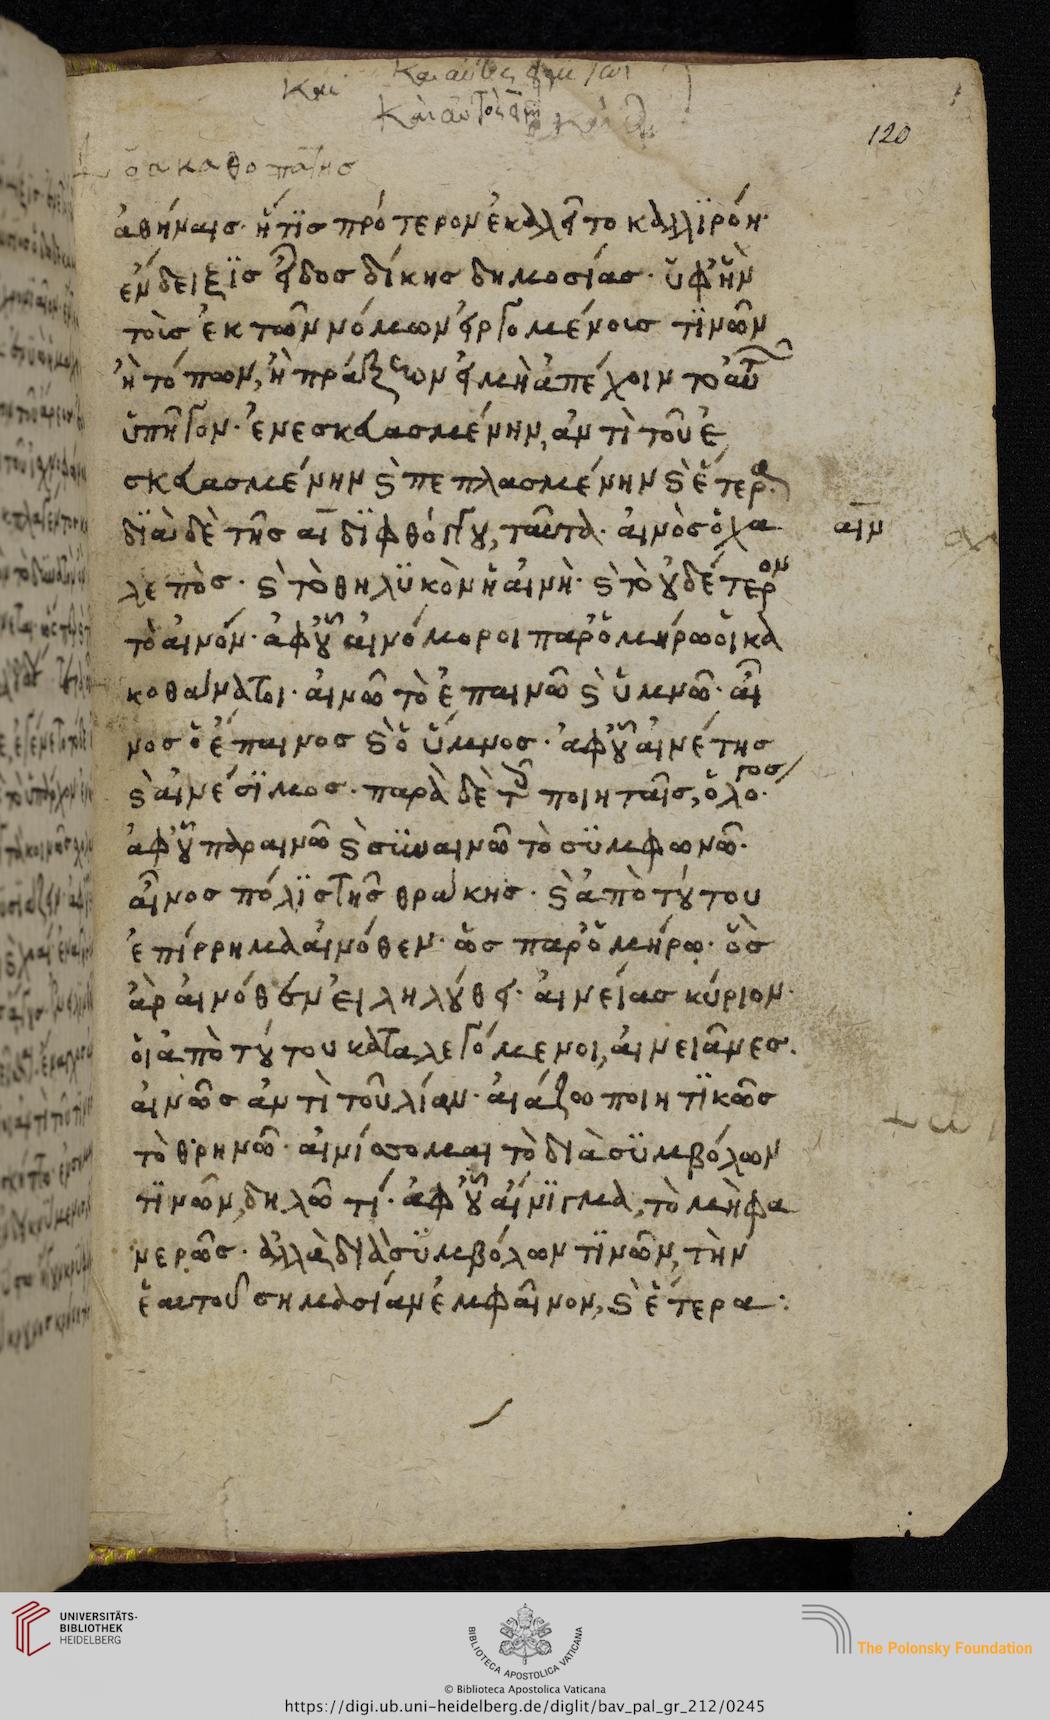 Και
120
ἀθήναις· ἥτϊς πρότερον ἐκαλεῖτο καλλϊρόη·
ἔνδειξϊς εἶδος δίκης δημοσίας· ὑφ' ἣν
τοῖς ἐκ τῶν νόμων εἰργομένοις τϊνῶν
ἢ τόπων, ἢ πράξεων εἰ μὴ ἀπέχοιντο αὐτῶν
ὑπῆγον· ἐνεσκευασμένην, ἀντὶ τοῦ ἐ
σκευασμένην καὶ πεπλασμένην καὶ ἕτερα·
δϊὰ δὲ τῆς αι δϊφθόγγου, ταῦτα· αἰνὸς ὁ χα
λεπὸς· καὶ τὸ θηλϋκὸν ἡ αἰνὴ· καὶ τὸ οὐδέτερον
αιν
τὸ αἰνόν· ἀφ' οὗ αἰνόμοροι παρ' ὁμήρω οἱ κα
κοθάνατοι· αἰνῶ τὸ ἐπαινῶ καὶ ὑμνῶ· αἶ
νος ὁ ἔπαινος καὶ ὁ ὕμνος· ἀφ' οὗ αἰνέτης
καὶ αἰνέσϊμος· παρὰ δὲ τοῖς ποιηταῖς, ὁ λόγος·
ἀφ' οὗ παραινῶ καὶ σϋναινῶ τὸ σϋμφωνῶ·
αἶνος πόλϊς τῆς θράκης· καὶ ἀπὸ τούτου
ἐπίρρημα αἰνόθεν· ὡς παρ' ὁμήρω· ὃς
ἀρ αἰνόθεν εἰληλούθει· αἰνείας κύριον·
οἱ ἀπὸ τούτου καταλεγόμενοι, αἰνειᾶνες.
αἰνῶς ἀντὶ τοῦ λίαν· αἰάζω ποιητϊκῶς
τὸ θρηνῶ· αἰνίσσομαι τὸ διὰ σϋμβόλων
τϊνῶν, δηλῶ τί· ἀφ' οὗ αἴνϊγμα, τὸ μὴ φα
νερῶς· ἀλλὰ διὰ σϋμβόλων τϊνῶν, τὴν
ἑαυτοῦ σημασίαν ἐμφαῖνον, καὶ ἕτερα:
UNIVERSITÄTS-
BIBLIOTHEK
HEIDELBERG
BIBLIOTECA APOSTOLICA VATICANA
The Polonsky Foundation
© Biblioteca Apostolica Vaticana
https://digi.ub.uni-heidelberg.de/diglit/bav_pal_gr_212/0245